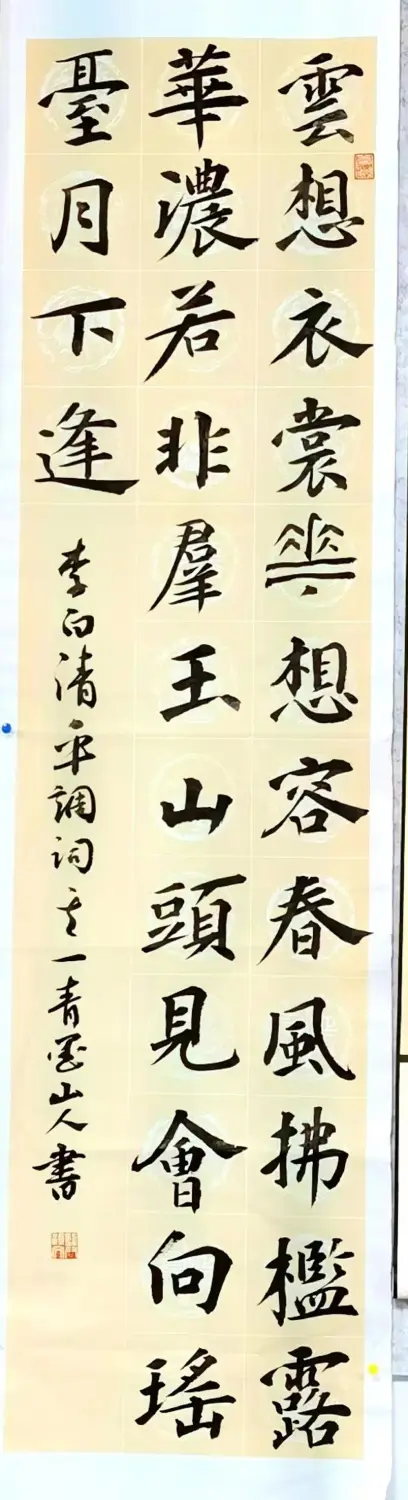 雲想衣裳花想容春風拂檻露
華濃若非羣玉山頭見會向瑤
臺月下逢
李白清平調詞其一青岩山人書